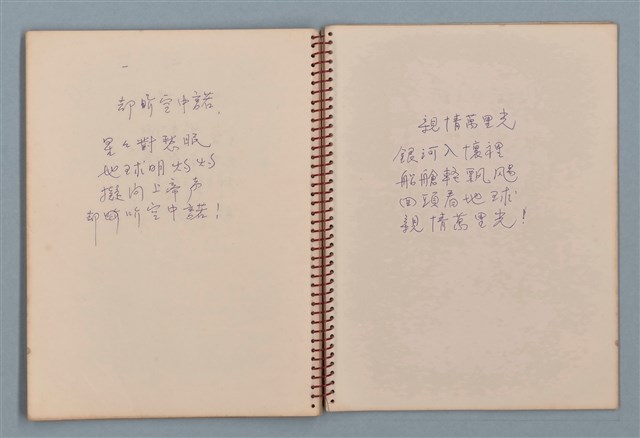 一
却聆空中諾.
星々對愁眠
地球明灼灼
擬向上帝声
却聆听空中諾!
親情萬里光
銀河入懷裡
船艙輕飄飏
回頭看地球
親情萬里光!